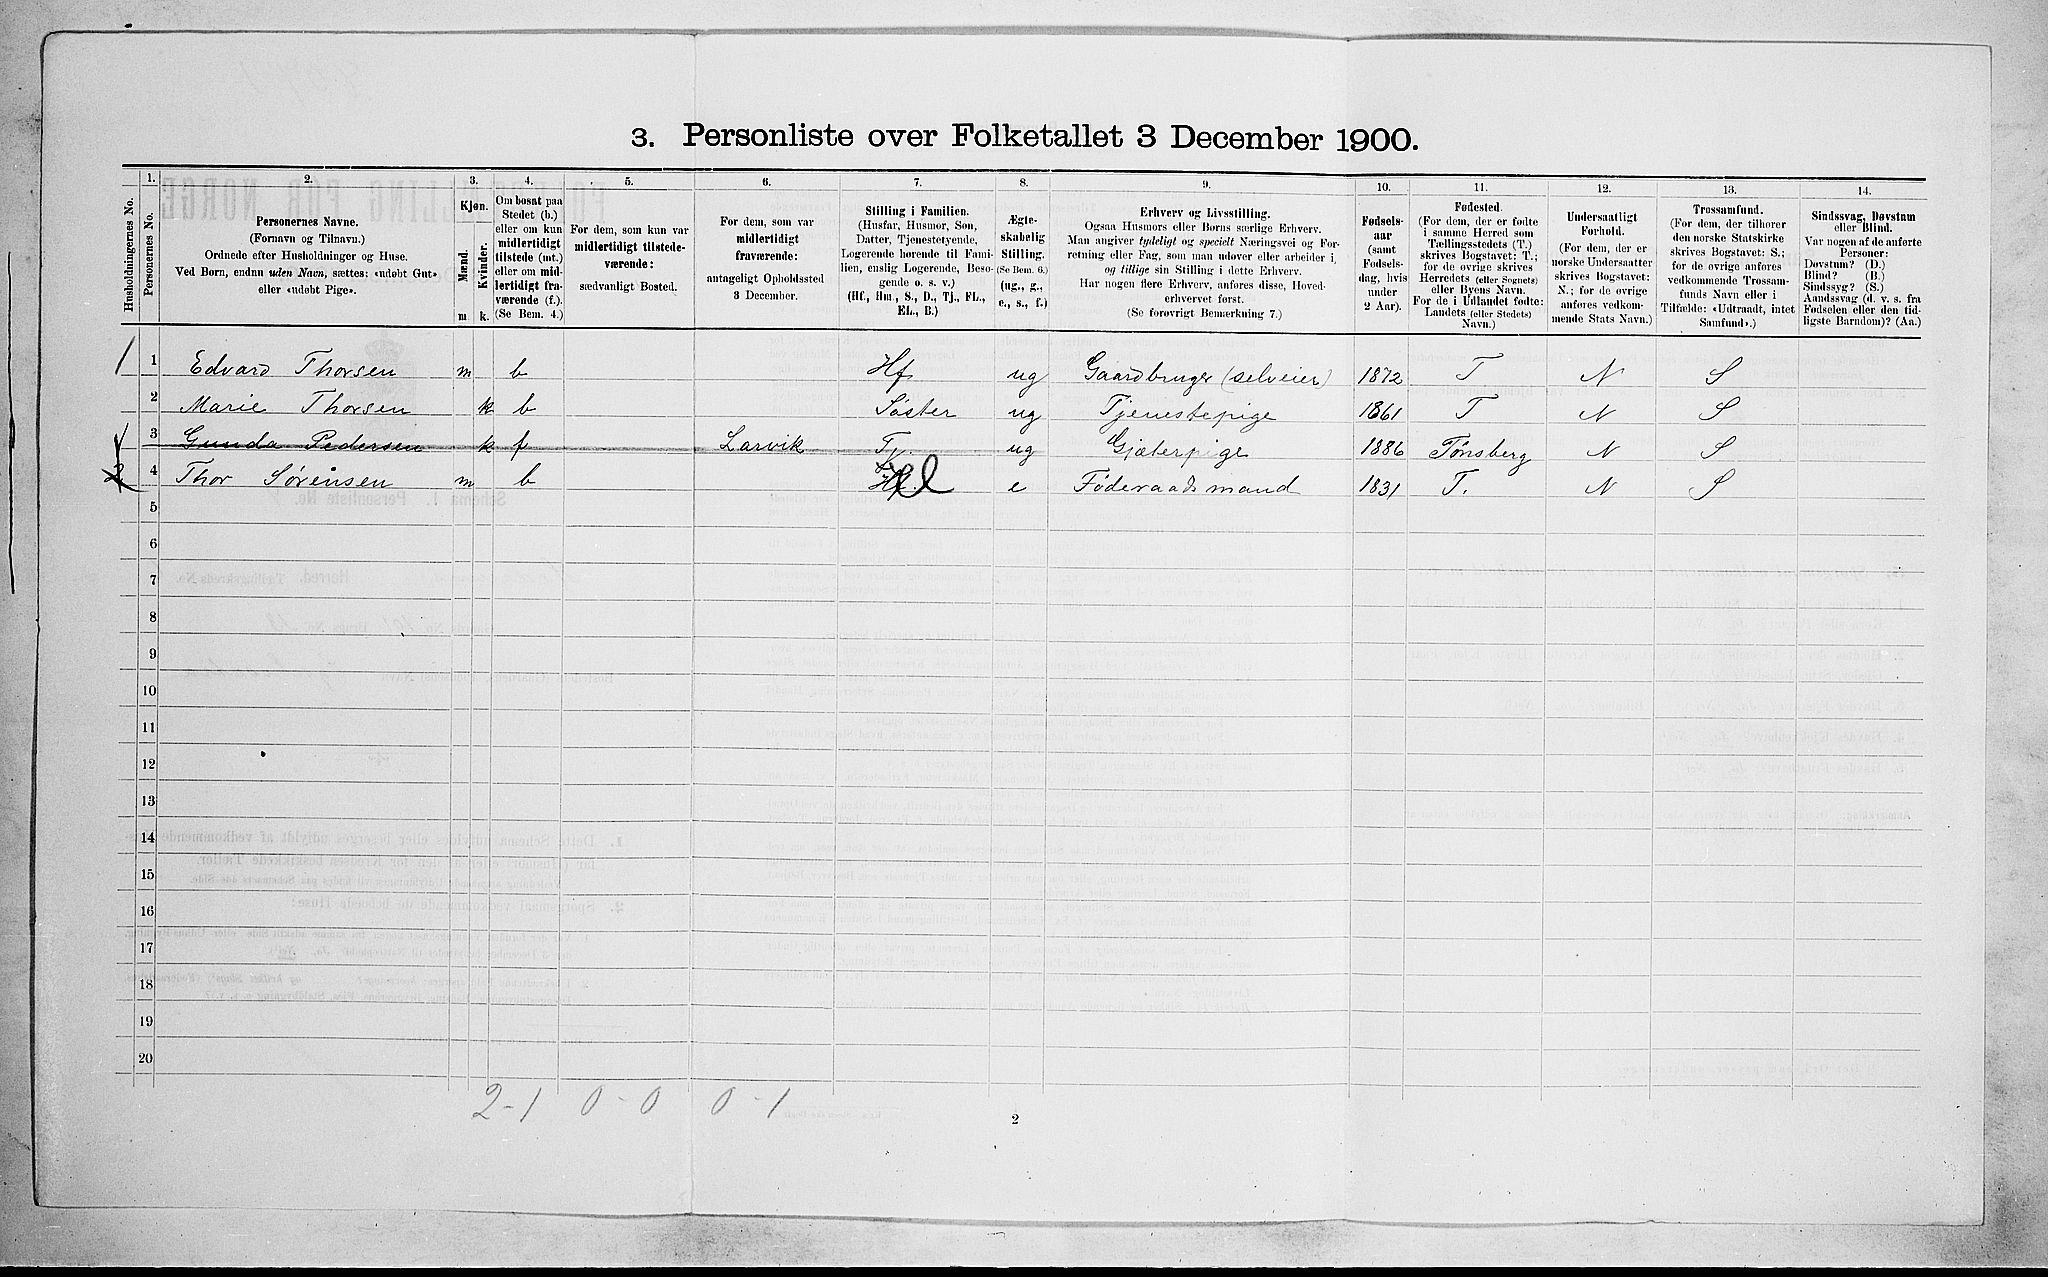 3. Personliste over Folketallet 3 December 1900.
Husholdningernes No.
1. Personernes No.
2. Personernes Navne. (Fornavn og Tilnavn.) Ordnede efter Husholdninger og Huse. Ved Børn, endnu uden Navn, sættes: «udøbt Gut» eller «udøbt Pige».
3. Kjøn. Mænd. Kvinder. m k.
4. Om bosat paa Stedet (b.) eller om kun midlertidigt tilstede (mt.) eller om midlertidigt fraværende (f.). (Se Bem. 4.)
5. For dem, som kun var midlertidigt tilstedeværende: sædvanligt Bosted.
6. For dem, som var midlertidigt fraværende: antageligt Opholdssted 3 December.
7. Stilling i Familien. (Husfar, Husmor, Søn, Datter, Tjenestetyende, Logerende hørende til Familien, enslig Logerende, Besøgende o. s. v.) (Hf, Hm, S, D., Tj., FL., EL., B.)
8. Ægteskabelig Stilling. (Se Bem. 6.) (ug., g., e., s., f.)
9. Erhverv og Livsstilling. Ogsaa Husmors eller Børns særlige Erhverv. Man angiver tydeligt og specielt Næringsvei og Forretning eller Fag, som man udøver eller arbeider i, og tillige sin Stilling i dette Erhverv. Har nogen flere Erhverv, anføres disse, Hovederhvervet først. (Se forøvrigt Bemærkning 7.)
10. Fødselsaar (samt Fødselsdag, hvis under 2 Aar).
11. Fødested. (For dem, der er fødte i samme Herred som Tællingsstedets (T.) skrives Bogstavet: T.; for de øvrige skrives Herredets (eller Sognets) eller Byens Navn. For de i Udlandet fødte: Landets (eller Stedets) Navn.)
12. Undersaatligt Forhold. (For dem, der er norske Undersaatter skrives Bogstavet: N.; for de øvrige anføres vedkommende Stats Navn.)
13. Trossamfund. (For dem, der tilhører den norske Statskirke skrives Bogstavet: S.; for de øvrige anføres vedkommende Trossamfunds Navn eller i Tilfælde: «Udtraadt, intet Samfund».)
14. Sindssvag, Døvstum eller Blind. Var nogen af de anførte Personer: Døvstum? (D.) Blind? (B.) Sindssyg? (S.) Aandssvag (d. v. s. fra Fødselen eller den tidligste Barndom)? (Aa.)
1 1 Edvard Thorsen m b Hf ug Gaardbruger (selveier) 1872 T N S
2 Marie Thorsen k b Søster ug Tjenestepige 1861 T N S
3 Gunda Pedersen k f Larvik Tj. ug Gjæterpige 1886 Tønsberg N S
2 4 Thor Sørensen m b e Føderaadsmand 1831 T. N S
5
6
7
8
9
10
11
12
13
14
15
16
17
18
19
20
2-1 0-0 0-1
2